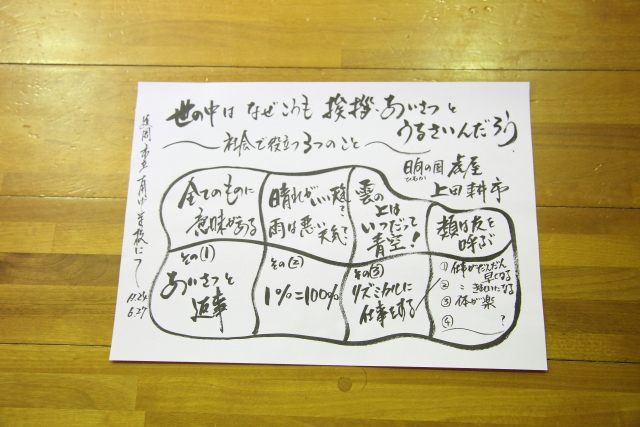 世の中は なぜこうも 挨拶・あいさつと
うるさいんだろう
〜社会で役立つ3つのこと〜
日向の国 虎屋
ひむか
上田耕市
全てのものに
意味がある
晴れがいい天気で
雨は悪い天気で
雲の
上は
いつだって
青空!
類は友を
呼ぶ
その(1)
あいさつと
返事
その(2)
1%=100%
その(3)
リズミカルに
仕事をする
① 仕事がだんだん
早くなる
② 〃 きれいになる
③ 体が楽
④ ?
延岡市立南中学校にて
H.24
6.27